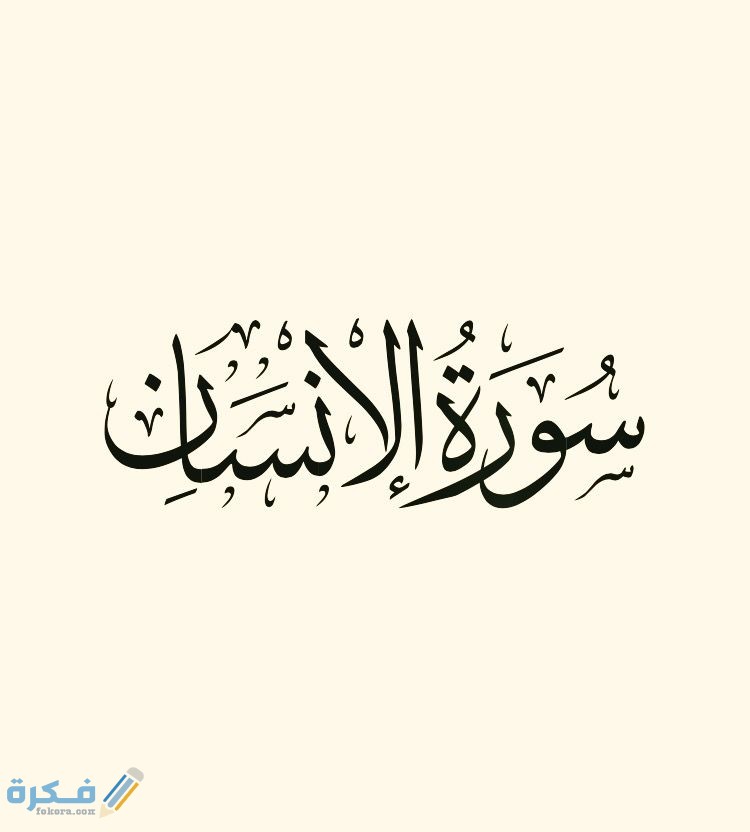 سُورَةُ الإِنْسَانِ
فكرة
fokora.com